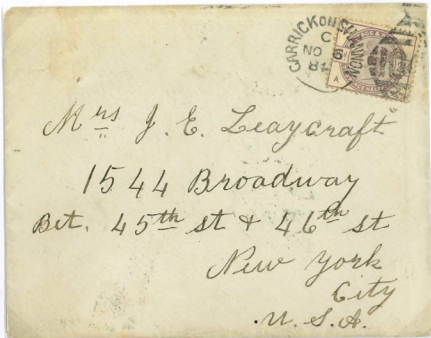 CARRICK ON SHANNON
C
NO 5
84
A
Mrs J. E. Leaycraft
1544 Broadway
Bet. 45th st & 46th st
New York
City
U. S. A.